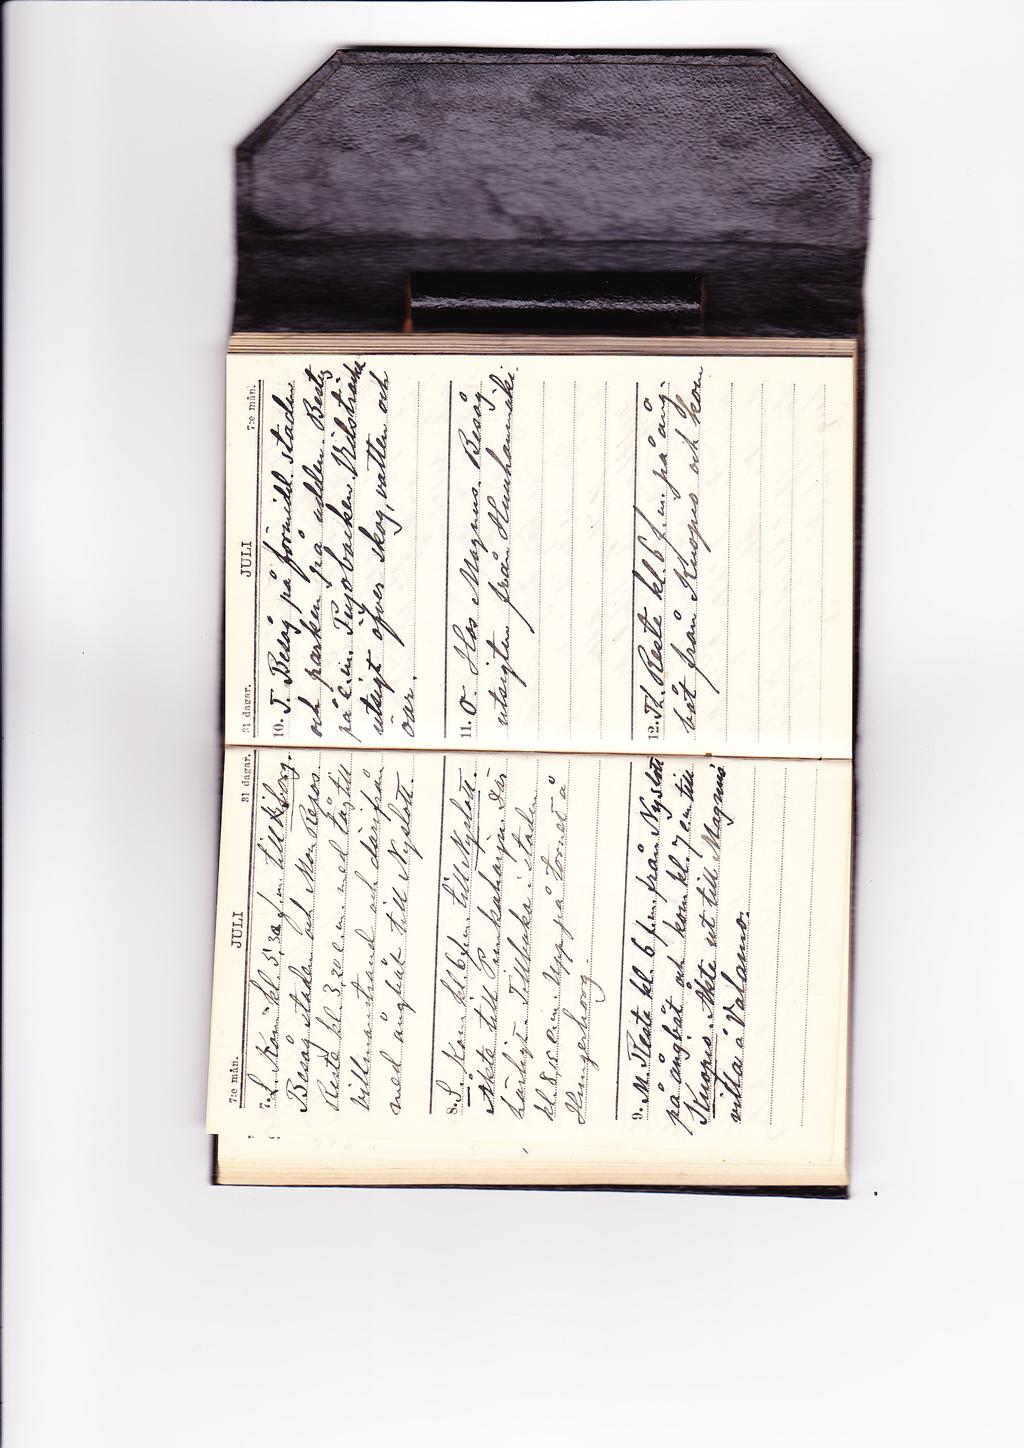 7:e mån. JULI 31 dagar.
7. L. Kom kl. 5,30 f.m. till Viborg.
Besåg staden och Mon Repos.
Reste kl. 3,20 e.m. med tåg till
Villmanstrand och därifrån
med ångbåt till Nyslott.
8. S. Kom kl. 6 f.m. till Nyslott.
Åkte till Punkaharju. Där
härligt. Tillbaka i staden
kl. 8,15 e.m. Upp på tornet å
Hungerborg.
9. M. Reste kl. 6 f.m. från Nyslott
på ångbåt och kom kl. 7 e.m. till
Kuopio. Åkte ut till Magnus
villa å Valamo.
31 dagar. JULI 7:e mån.
10. T. Besåg på förmidd. staden
och parken på udden. Besteg
på e.m. Puijobacken. Vidsträckt
utsigt öfver skog, vatten och
öar.
11. O. Hos Magnus. Besåg
utsigten från
12. Th. Reste kl. 6 f.m. på ång-
båt från Kuopio och kom